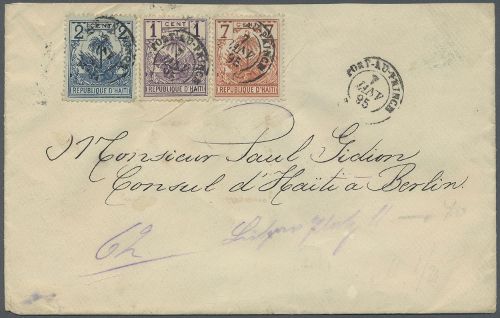 2 CENT 2
REPUBLIQUE D'HAITI
1 CENT 1
REPUBLIQUE D'HAITI
7 CENT 7
REPUBLIQUE D'HAITI
PORT-AU-PRINCE
7
JANV
95
PORT-AU-PRINCE
7
JANV
95
Monsieur Paul Gidion
Consul d'Haïti à Berlin.
62